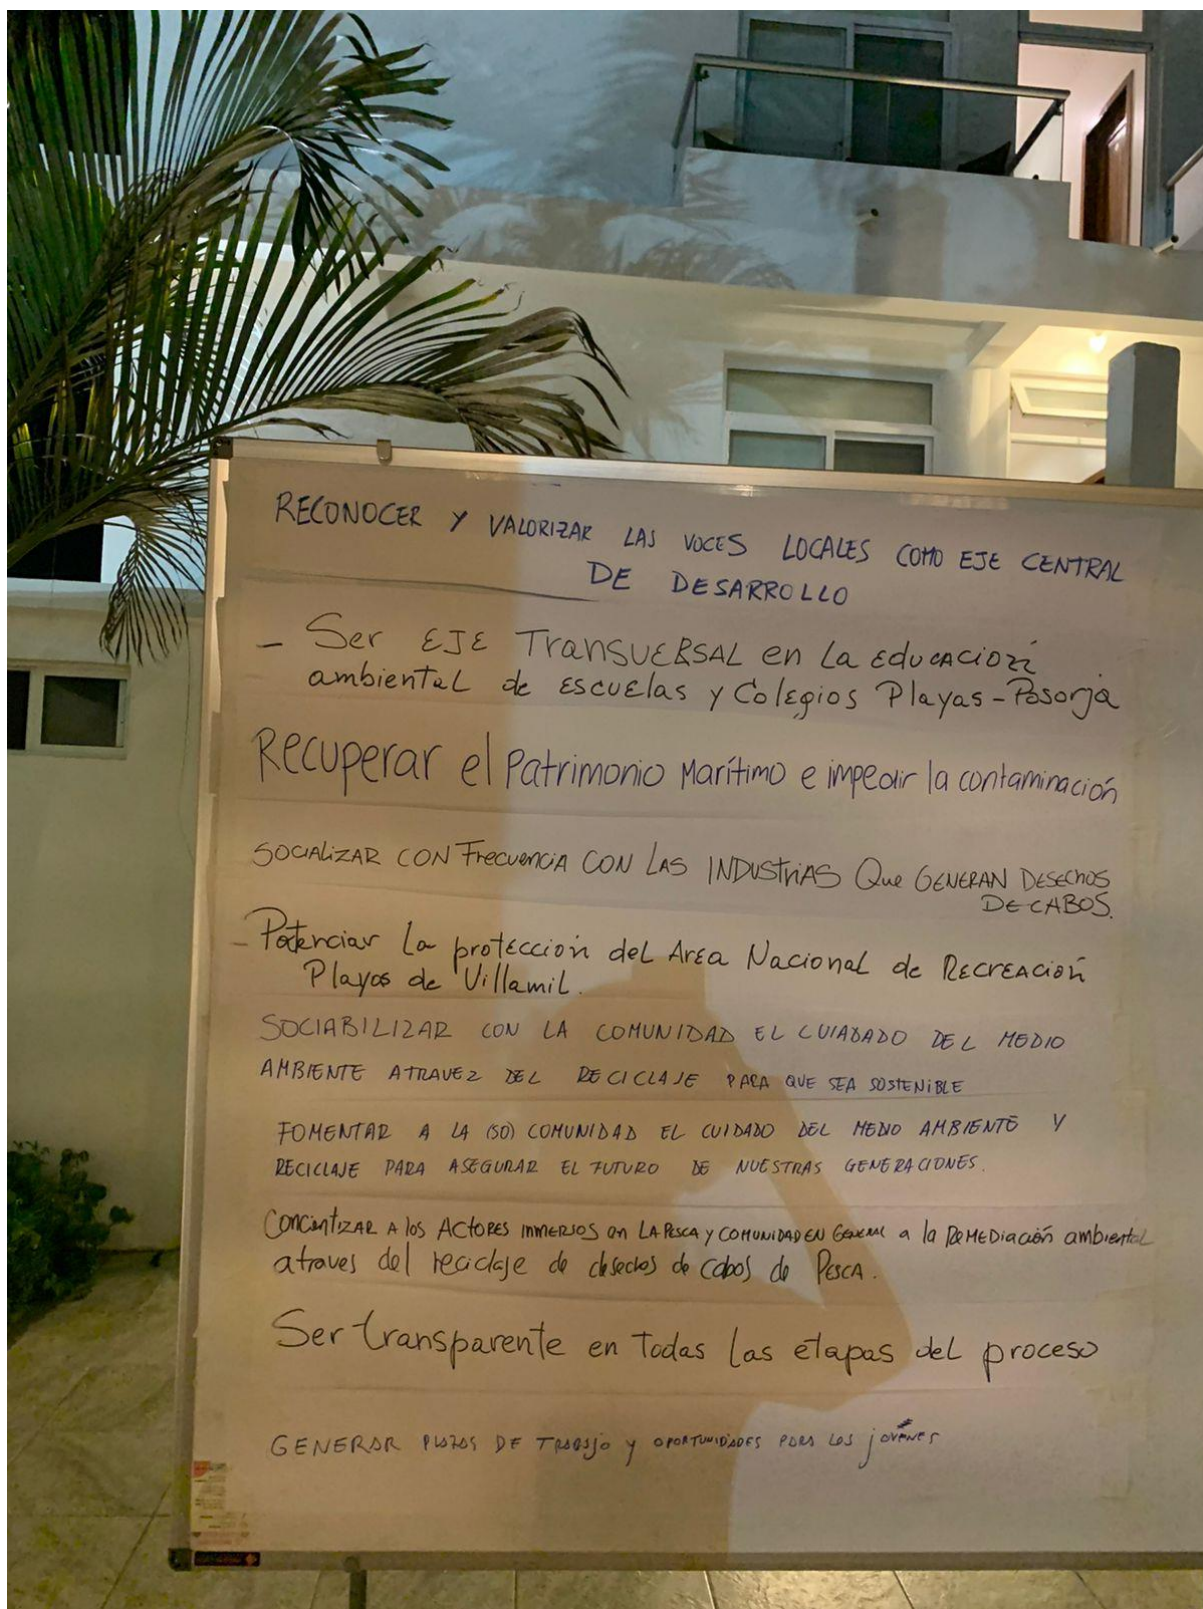 RECONOCER Y VALORIZAR LAS VOCES LOCALES COMO EJE CENTRAL
DE DESARROLLO
- Ser EJE TransveRSAL en La educación
ambiental de Escuelas y Colegios Playas-Posorja
Recuperar el Patrimonio Marítimo e impedir la contaminación
SOCIALIZAR CON Frecuencia CON LAS INDUSTRIAS Que GENERAN DESECHOS
DE CABOS.
- Potenciar La protección del Area Nacional de Recreación
Playas de Villamil.
SOCIABILIZAR CON LA COMUNIDAD EL CUIADADO DEL MEDIO
AMBIENTE ATRAVEZ DEL RECICLAJE PARA QUE SEA SOSTENIBLE
FOMENTAR A LA (SO) COMUNIDAD EL CUIDADO DEL MEDIO AMBIENTE Y
RECICLAJE PARA ASEGURAR EL FUTURO DE NUESTRAS GENERACIONES.
Concientizar A los Actores inmersos en LA PESCA y COMUNIDAD EN General a la Remediación ambiental
atraves del reciclaje de desechos de cabos de Pesca.
Ser transparente en Todas las etapas del proceso
GENERAR PLAZAS DE TRABAJO y OPORTUNIDADES PARA LOS jóvenes